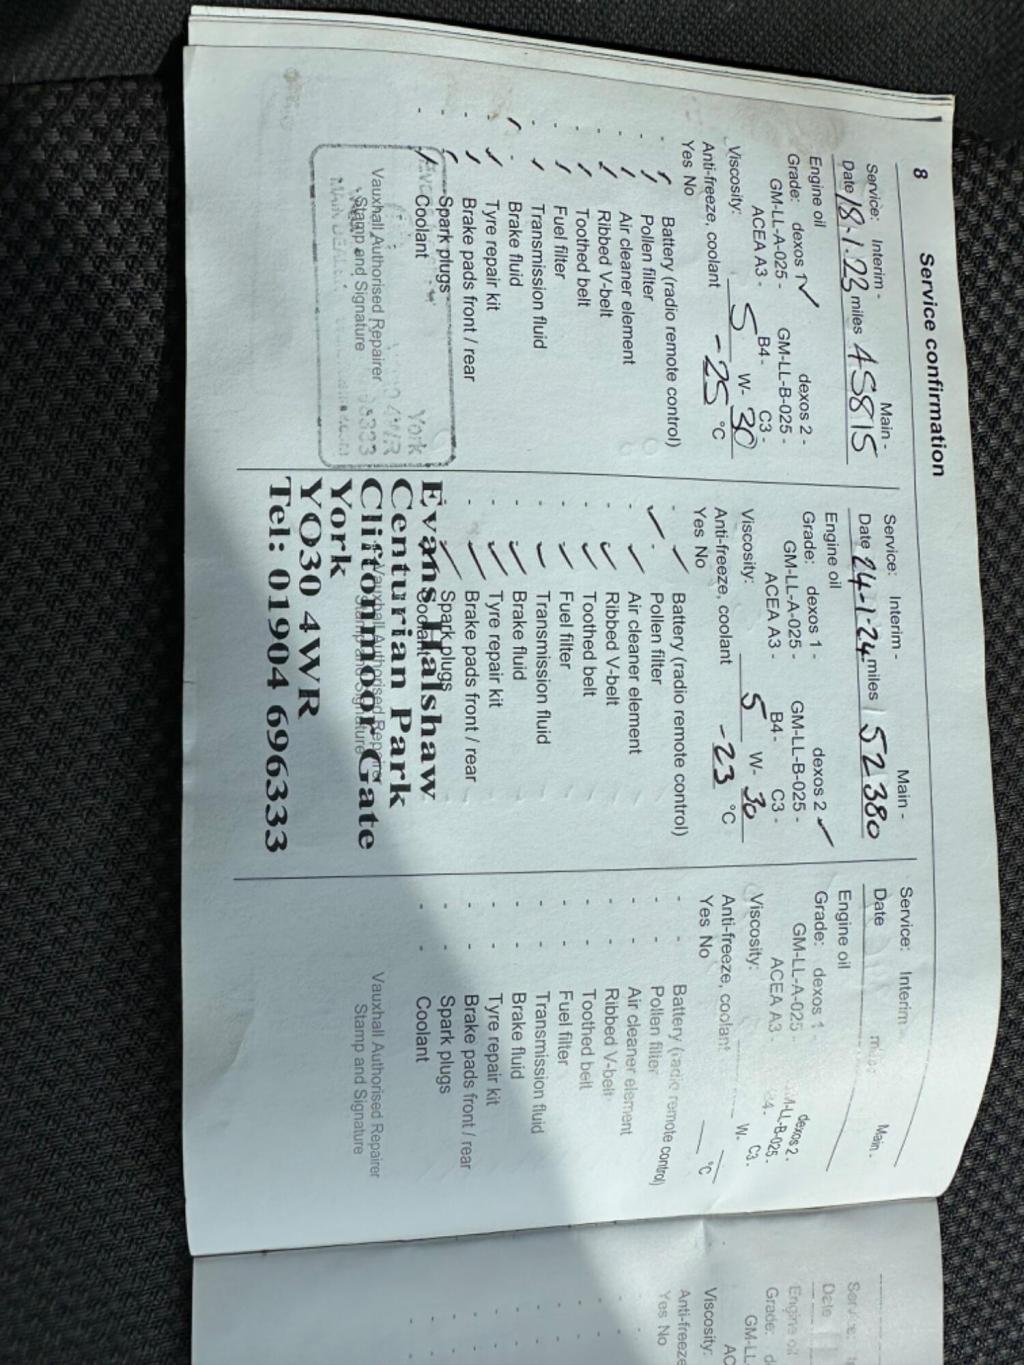 8
Service confirmation
Service: Interim - Main -
Date 18.1.23 miles 45815
Engine oil
Grade: dexos 1 ✓ dexos 2 -
GM-LL-A-025 - GM-LL-B-025 -
ACEA A3 - B4 - C3 -
Viscosity: 5 W- 30
Anti-freeze, coolant -25 °C
Yes No
Battery (radio remote control)
Pollen filter
Air cleaner element
Ribbed V-belt
Toothed belt
Fuel filter
Transmission fluid
Brake fluid
Tyre repair kit
Brake pads front / rear
Spark plugs
Coolant
Vauxhall Authorised Repairer
Stamp and Signature
York
4WR
Service: Interim - Main -
Date 24-1-24 miles 52380
Engine oil
Grade: dexos 1 - dexos 2 ✓
GM-LL-A-025 - GM-LL-B-025 -
ACEA A3 - B4 - C3 -
Viscosity: 5 W- 30
Anti-freeze, coolant -23 °C
Yes No
Battery (radio remote control)
Pollen filter
Air cleaner element
Ribbed V-belt
Toothed belt
Fuel filter
Transmission fluid
Brake fluid
Tyre repair kit
Brake pads front / rear
Spark plugs
Coolant
Vauxhall Authorised Repairer
Stamp and Signature
Evans Halshaw
Centurian Park
Cliftonmoor Gate
York
YO30 4WR
Tel: 01904 696333
Service: Interim - Main -
Date miles
Engine oil
Grade: dexos 1 - dexos 2 -
GM-LL-A-025 - GM-LL-B-025 -
ACEA A3 - B4 - C3 -
Viscosity: W-
Anti-freeze, coolant °C
Yes No
Battery (radio remote control)
Pollen filter
Air cleaner element
Ribbed V-belt
Toothed belt
Fuel filter
Transmission fluid
Brake fluid
Tyre repair kit
Brake pads front / rear
Spark plugs
Coolant
Vauxhall Authorised Repairer
Stamp and Signature
Service:
Date
Engine oil
Grade:
GM-LL
AC
Viscosity:
Anti-freeze
Yes No